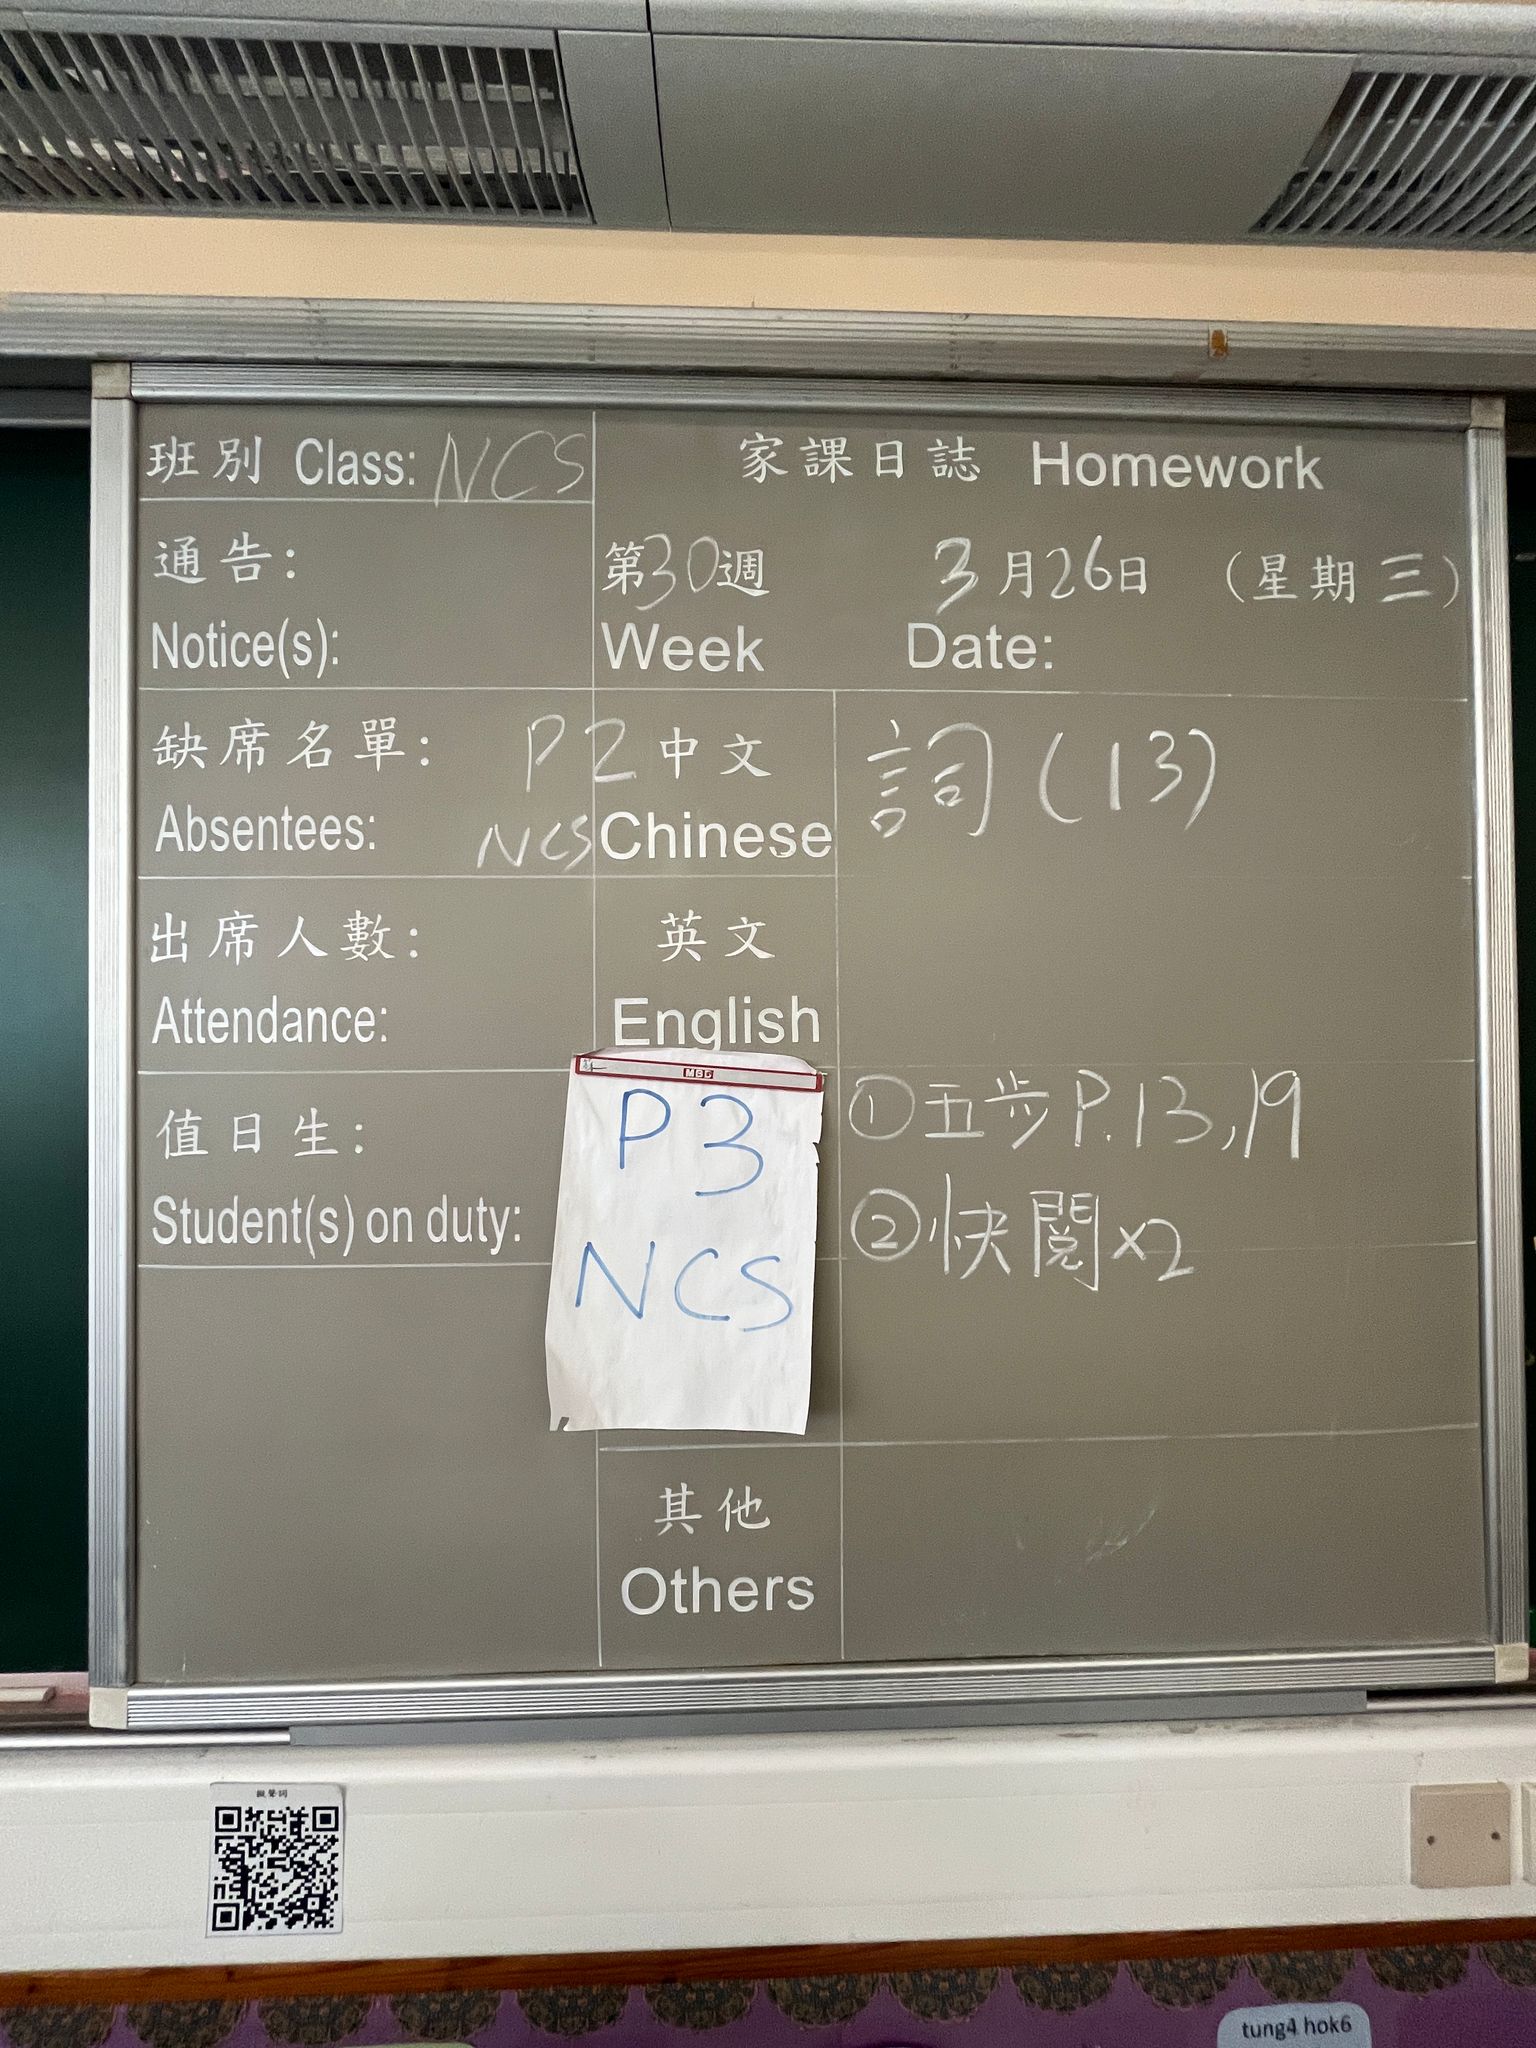 班別 Class: NCS
家課日誌 Homework
通告:
Notice(s):
第30週 3月26日 (星期三)
Week Date:
缺席名單:
Absentees:
P2
NCS
中文
Chinese
詞(13)
出席人數:
Attendance:
英文
English
值日生:
Student(s) on duty:
MBG
P3
NCS
①五步P.13,19
②快閱x2
其他
Others
tung4 hok6